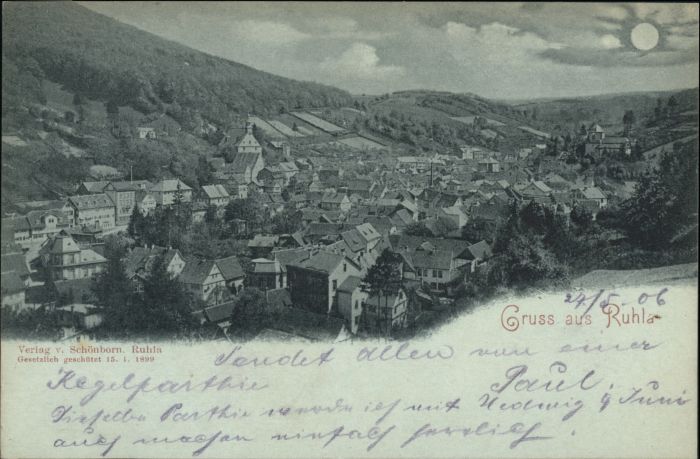 27/5. 06
Gruss aus Ruhla
Verlag v. Schönborn. Ruhla
Gesetzlich geschützt 15. 1. 1899
Sendet allen von einer
Kegelparthie Paul.
Dieselbe Parthie werde ich mit Hedwig 9 Juni
auch machen einfach herrlich.